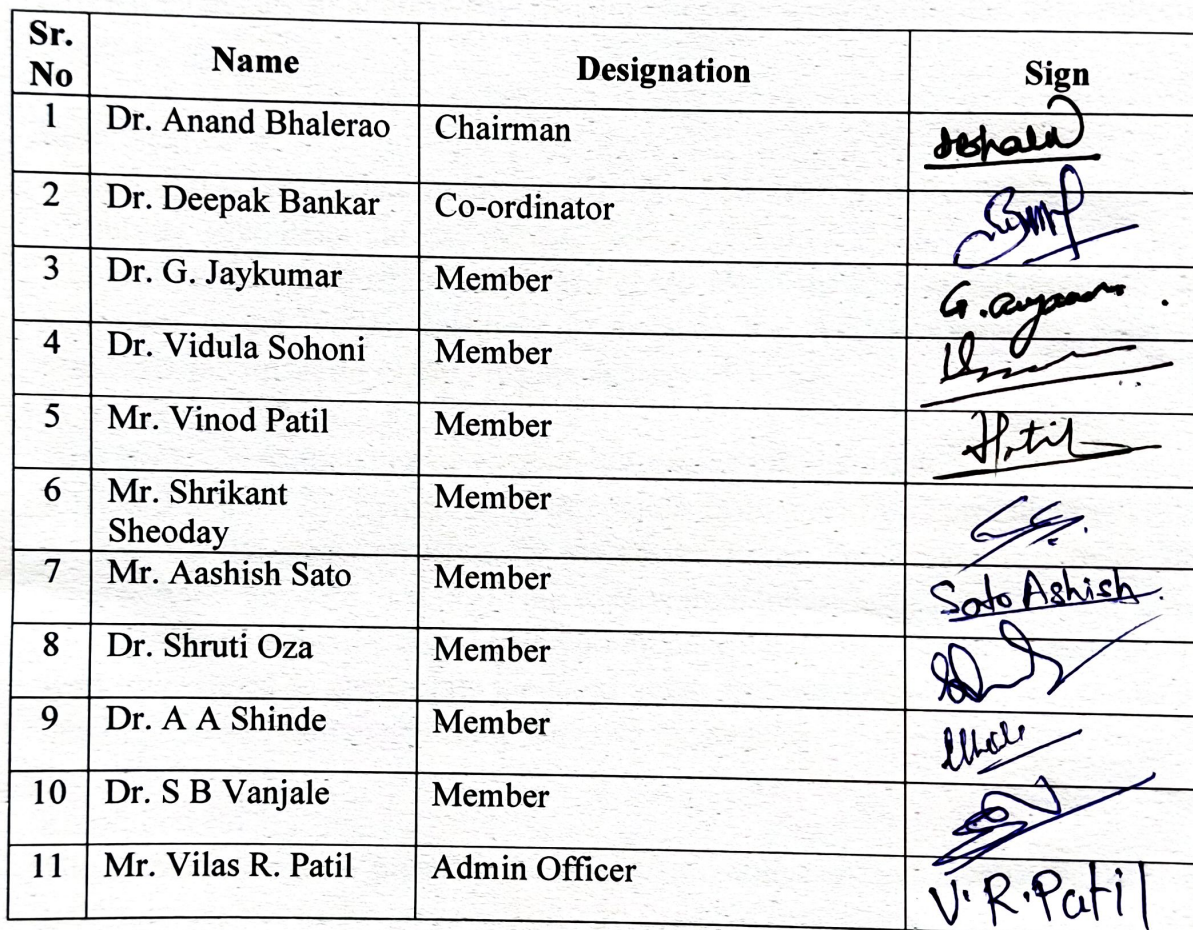 Sr. No Name Designation Sign
1 Dr. Anand Bhalerao Chairman
2 Dr. Deepak Bankar Co-ordinator
3 Dr. G. Jaykumar Member
4 Dr. Vidula Sohoni Member
5 Mr. Vinod Patil Member
6 Mr. Shrikant
Sheoday Member
7 Mr. Aashish Sato Member Sato Ashish
8 Dr. Shruti Oza Member
9 Dr. A A Shinde Member
10 Dr. S B Vanjale Member
11 Mr. Vilas R. Patil Admin Officer V.R.Patil